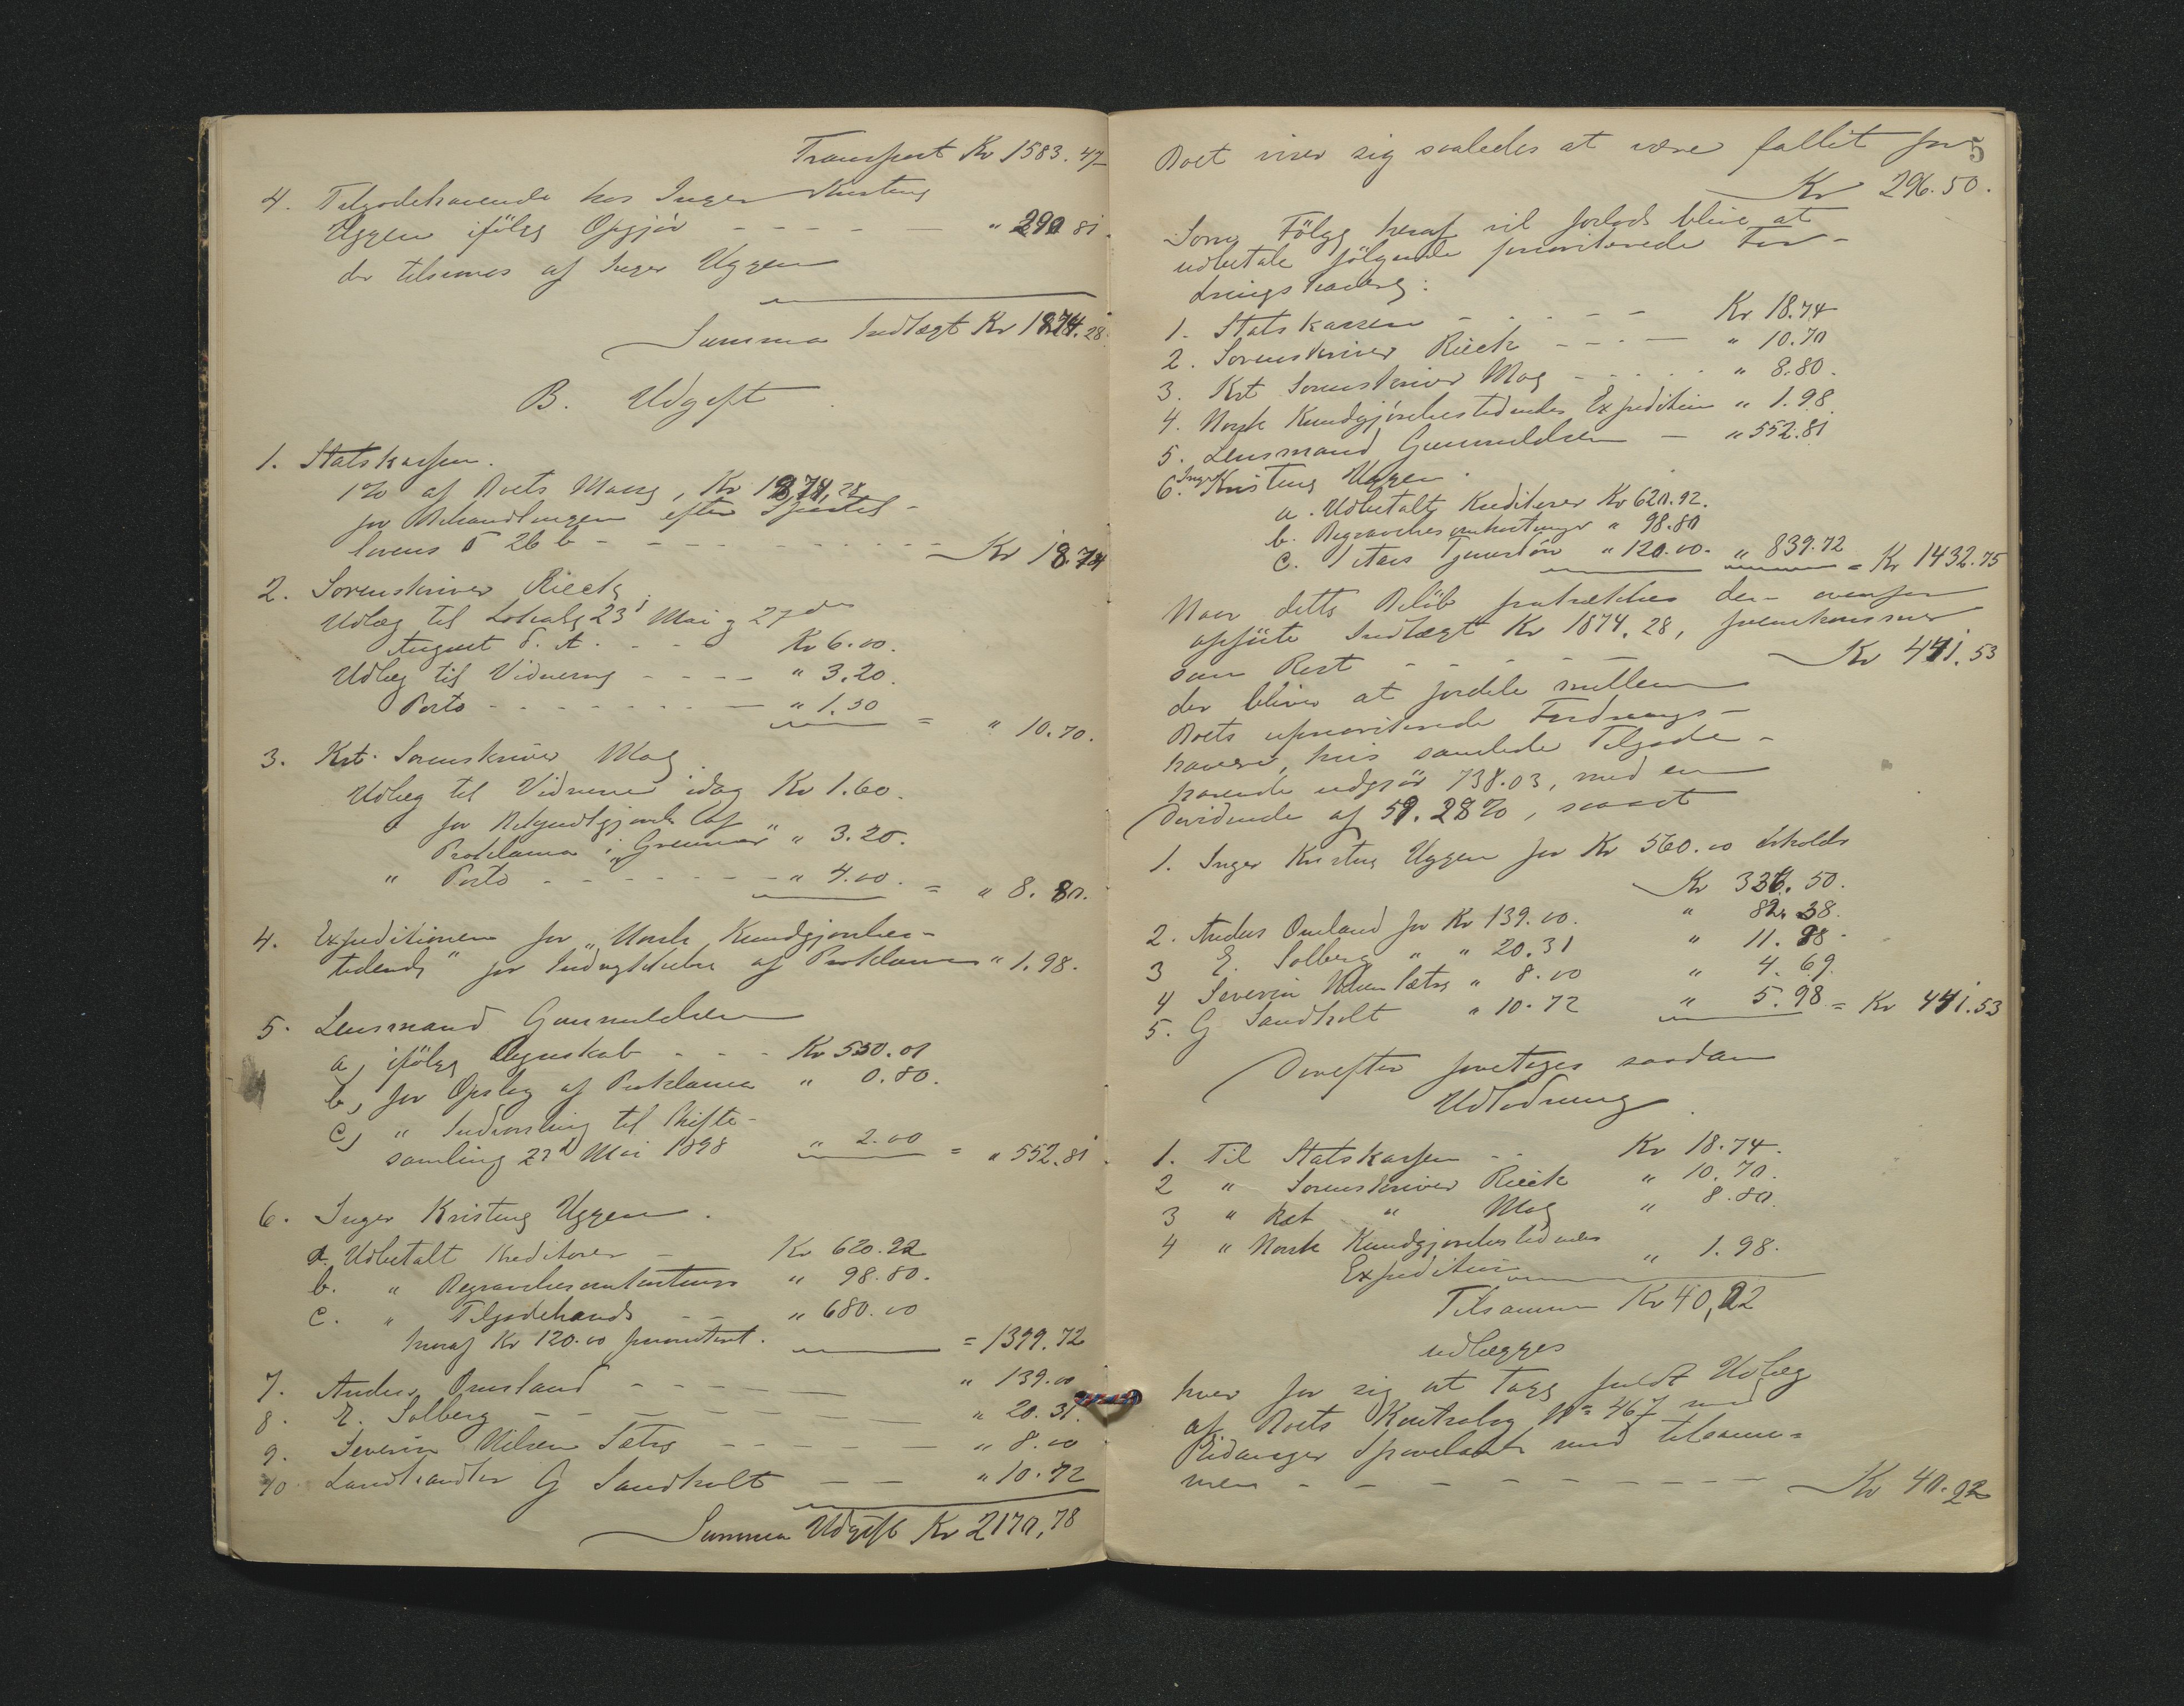 Transport Kr 1583.47
4. Tilgodehavende hos Inger Kristine
Uggen ifölge Opgjör - - - - - " 290 81.
der tilsvares af Inger Uggen
Summa Indtægt Kr 1874.28.
B. Udgift
1. Statskassen.
1% af Boets Masse, Kr 1874,28
for Behandlingen efter Sportel-
lovens § 26 b - - - - - - - - Kr 18.74
2. Sorenskriver Rieck.
Udlæg til Lokale 23' Mai og 27de
August d. A. - - - Kr 6.00.
Udlæg til Vidnerne - - - - " 3.20.
Porto - - - - - - - - " 1.50 = " 10.70.
3. Kst. Sorenskriver Moe.
Udlæg til Vidnerne idag Kr 1.60.
" for Bekjendtgjørelse af
Proklama i "Grenmar" " 3.20.
" Porto - - - - - - - " 4.00. = " 8.80.
4. Expeditionen for "Norsk Kundgjørelses-
tidende" for Indrykkelse af Proklama " 1.98.
5. Lensmand Gunnuldsen
a, ifölge Regnskab - - - Kr 550.01
b, for Opslag af Proklama " 0.80.
c, " Indvarsling til Skifte-
samling 23d Mai 1898 " 2.00 = " 552.81.
6. Inger Kristine Uggen.
a. Udbetalt Kreditorer - Kr 620.92
b. " Begravelsesomkostninger " 98.80.
c. " Tilgodehavende - - " 680.00
hvoraf Kr 120.00 prioritert. = 1399.72
7. Anders Omland - - - - - - " 139.00
8. E. Solberg - - - - - - - " 20.31.
9. Severin Nilsen Sætre - - - - - " 8.00
10. Landhandler G Sandholt - - " 10.72
Summa Udgift Kr 2170,78
5
Boet viser sig saaledes at være fallit for
Kr 296.50.
Som Fölge heraf vil forlods blive at
udbetale fölgende prioriterede For-
dringshavere:
1. Statskassen - - - - - Kr 18.74
2. Sorenskriver Rieck - - - - " 10.70
3. Kst Sorenskriver Moe - - - - - " 8.80.
4. Norsk Kundgjörelsestidendes Expedition " 1.98.
5. Lensmand Gunnuldsen - " 552.81
6. Inger Kristine Uggen.
a. Udbetalt Kreditorer Kr 620.92.
b. Begravelsesomkostninger " 98.80
c. 1 Aars Tjenerlön " 120.00. " 839.72 = Kr 1432.75
Naar dette Belöb fratrækkes den ovenfor
opförte Indtægt Kr 1874.28, fremkommer
som Rest - - - - - - Kr 441.53
der bliver at fordele mellem
Boets uprioriterede Fordrings-
havere, hvis samlede Tilgode-
havende udgjör 738.03, med en
Dividende af 59.28%, saaat
1. Inger Kristine Uggen for Kr 560.00 erholder
Kr 336.50.
2. Anders Omland for Kr 139.00. " 82.38.
3 E. Solberg " " 20.31 " 11.98.
4 Severin Nilsen Sætre " 8.00 " 4.69.
5. G Sandholt " 10.72 " 5.98 = Kr 441.53
Derefter foretages saadan
Udlodning.
1. Til Statskassen - - Kr 18.74.
2 " Sorenskriver Rieck " 10.70.
3 " Kst " Moe " 8.80.
4 " Norsk Kundgjørelsestidendes
Expedition " 1.98.
Tilsammen Kr 40,22
udlægges
hver for sig at tage fuldt Udlæg
af Boets Kontrabog No 467 med
Eidanger Sparebank med tilsam-
men - - - - - - - - - Kr 40.22